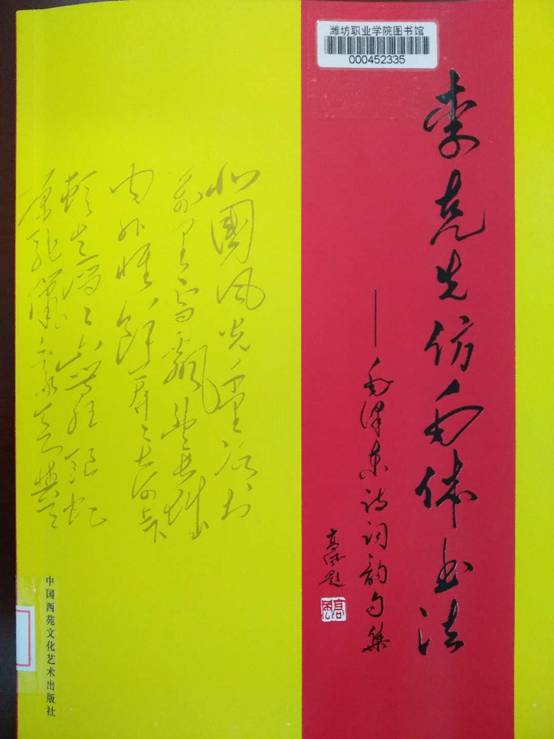 潍坊职业学院图书馆
000452335
李克先仿毛体书法
——毛泽东诗词韵句集
北國风光千里冰封
万里雪飘望长城
内外惟馀莽莽大河上下
顿失滔滔山舞银蛇
原驰
中国西苑文化艺术出版社